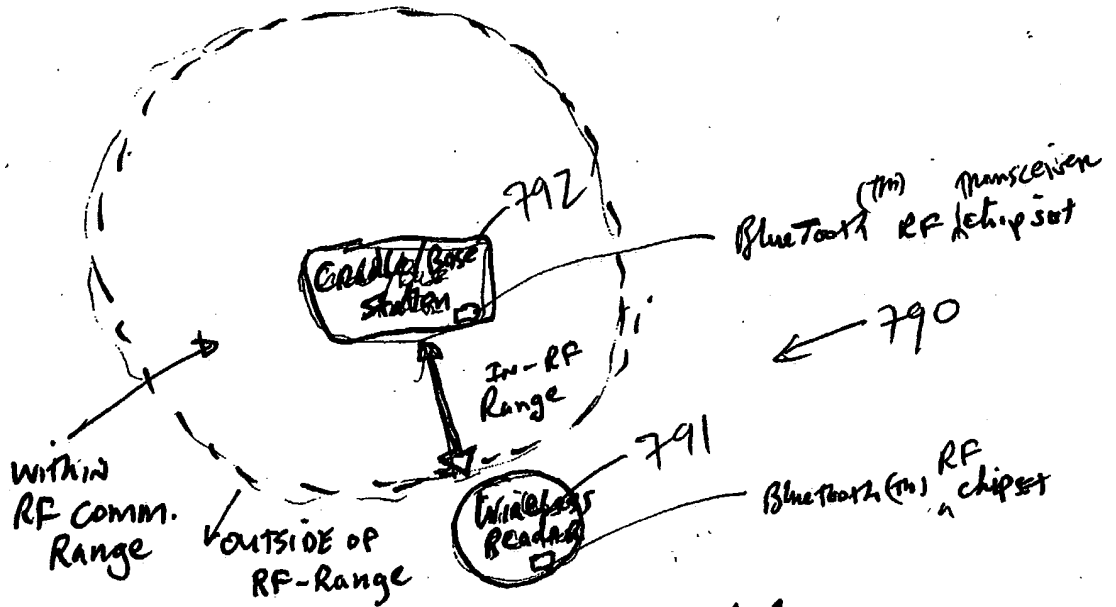 792
Cradle/Base
Station
BlueTooth (TM) RF Transceiver chipset
790
In-RF
Range
791
Within
RF Comm.
Range
OUTSIDE OF
RF-Range
Wireless
Reader
BlueTooth (TM) RF chipset